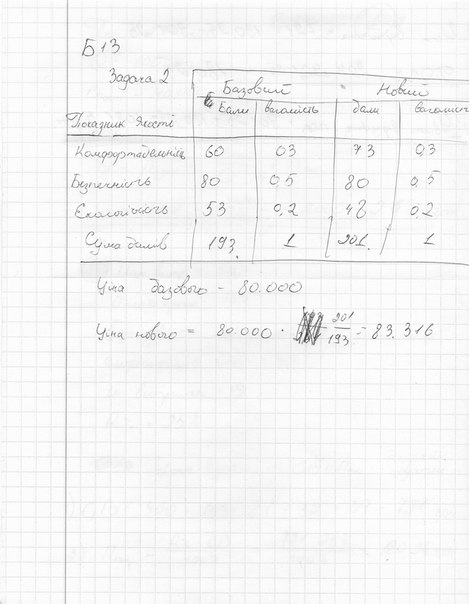 Б 13
Задача 2
Базовий Новий
Показник якості Бали вагомість бали вагомість
Комфортабельність 60 0,3 73 0,3
Безпечність 80 0,5 80 0,5
Екологічність 53 0,2 48 0,2
Сума балів 193. 1 201. 1
Ціна базового - 80.000
Ціна нового = 80.000 · 201/193 = 83.316